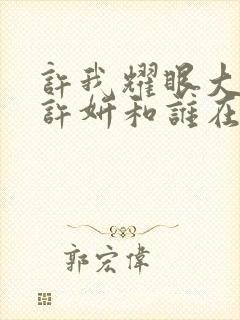 許我耀眼大
許妍和誰在
郭宏偉